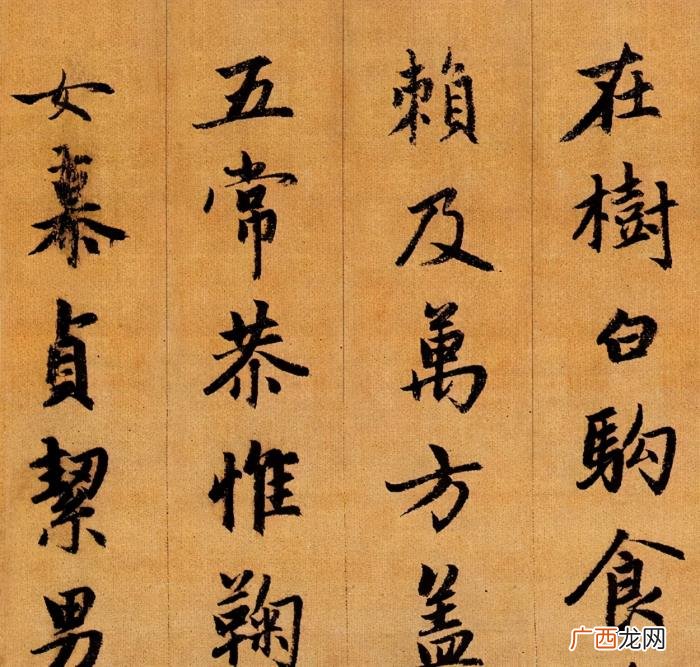 在樹白駒食
賴及萬方盖
五常恭惟鞠
女慕貞絜男
广西龙网